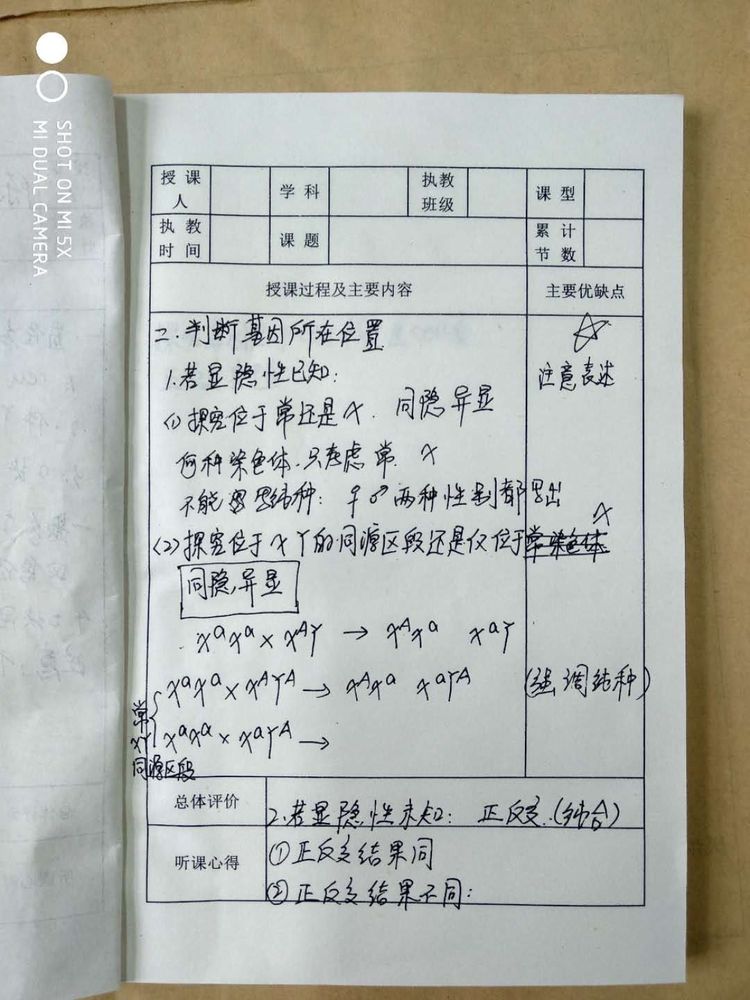 SHOT ON MI 5X
MI DUAL CAMERA
授课人 学科 执教班级 课型
执教时间 课题 累计节数
授课过程及主要内容 主要优缺点
二.判断基因所在位置
1.若显隐性已知: 注意表述
(1)探究位于常还是X. 同隐异显
何种染色体.只考虑常. X
不能 纯种: ♀♂两种性别都写出
(2)探究位于XY的同源区段还是仅位于常染色体 X
同隐,异显
XᵃXᵃ × XᴬY → XᴬXᵃ XᵃY
XᵃXᵃ × XᴬYᴬ → XᴬXᵃ XᵃYᴬ (强调纯种)
常
XY XᵃXᵃ × XᵃYᴬ →
同源区段
总体评价 2.若显隐性未知: 正反交.(纯合)
听课心得 ①正反交结果同
②正反交结果不同: